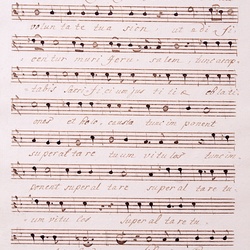 voluntate tua sion ut aedifi-
centur muri Jerusalem. tunc accep-
tabis sacrificium justitiae oblatio-
nes et holocausta tunc imponent
super altare tuum vitulos tunc im-
ponent super altare super altare tu-
um vitulos super altare tu-